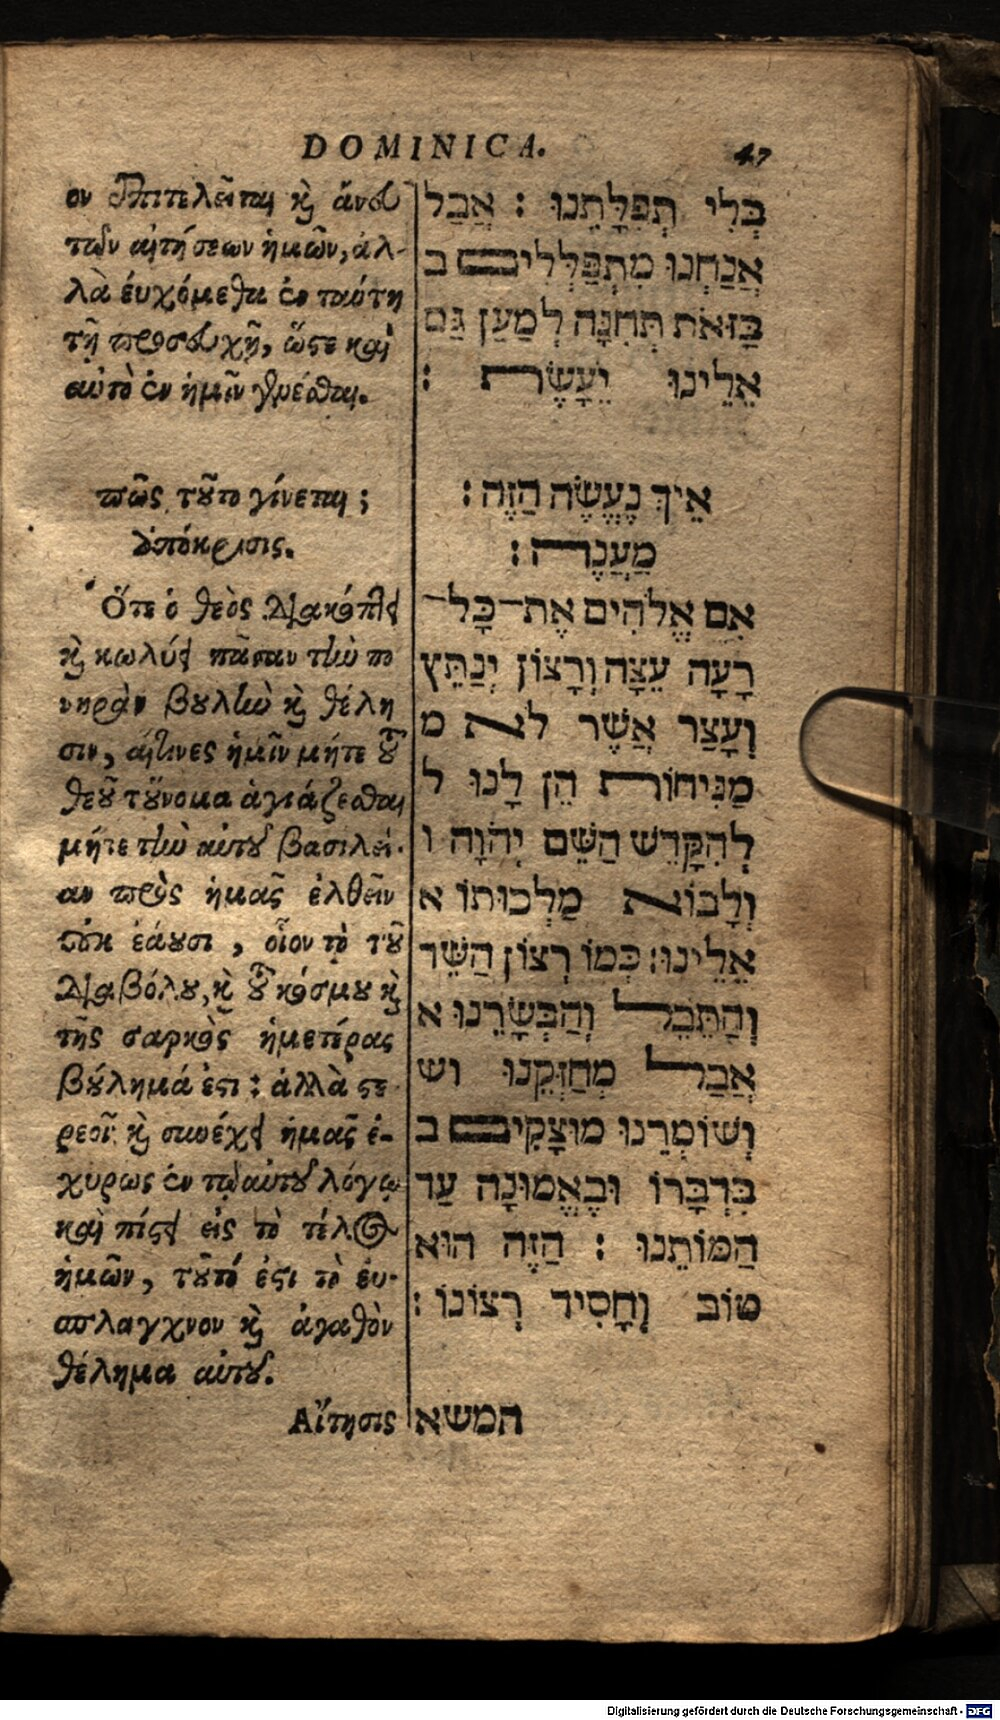 DOMINICA. 47
ον ἐπιτελεῖται καὶ ἄνευ
τῶν αἰτήσεων ἡμῶν, ἀλ-
λὰ ἐυχόμεθα ἐν ταύτῃ
τῇ προσευχῇ, ὥστε καὶ
αὐτὸ ἐν ἡμῖν γενέσθαι.
πῶς τοῦτο γίνεται;
ἀπόκρισις.
Ὅτε ὁ θεὸς διακόπτει
καὶ κωλύει πᾶσαν τὴν πο
νηρὰν βουλὴν καὶ θέλη
σιν, αἵτινες ἡμῖν μήτε τοῦ
θεοῦ τοὔνομα ἁγιάζεσθαι
μήτε τὴν αὐτοῦ βασιλεί-
αν πρὸς ἡμᾶς ἐλθεῖν
οὐκ ἐάουσι, οἷον τὸ τοῦ
διαβόλου, καὶ τοῦ κόσμου καὶ
τῆς σαρκὸς ἡμετέρας
βούλημά ἐστι: ἀλλὰ στε
ρεοῖ καὶ συνέχει ἡμᾶς ἐ-
χυρως ἐν τῷ αὐτοῦ λόγῳ
καὶ πίστει εἰς τὸ τέλος
ἡμῶν, τοῦτό ἐστι τὸ ἐυ-
σπλαγχνον καὶ ἀγαθὸν
θέλημα αὐτοῦ.
Αἴτησις
בְּלִי תְפִלָּתֵנוּ : אֲבַל
אֲנַחְנוּ מִתְפַּלְּלִים ב
בָּזֹּאת תְּחִנָּה לְמַעַן גַּם
אֵלֵינוּ יֵעָשֶׂה :
אֵיךְ נֶעֱשֶׂה הַזֶּה :
מַעֲנֶה :
אִם אֱלֹהִים אֶת־כָּל־
רָעָה עֵצָה וְרָצוֹן יְנַתֵּץ
וְעָצַר אֲשֶׁר לא מ
מַנִּיחוֹת הֵן לָנוּ ל
לְהִקָּדֵשׁ הַשֵּׁם יְהֹוָה ו
וְלָבוֹא מַלְכוּתוֹ א
אֵלֵינוּ: כְּמוֹ רְצוֹן הַשֵּׁד
וְהַתֵּבֵל וְהַבְּשָׂרֵנוּ א
אֲבַל מְחַזְּקֵנוּ וש
וְשׁוֹמְרֵנוּ מוּצָקִים ב
בִּדְבָרוֹ וּבֶאֱמוּנָה עַד
הַמּוֹתֵנוּ : הַזֶּה הוּא
טוֹב וְחָסִיד רְצוֹנוֹ :
המשא
Digitalisierung gefördert durch die Deutsche Forschungsgemeinschaft - DFG